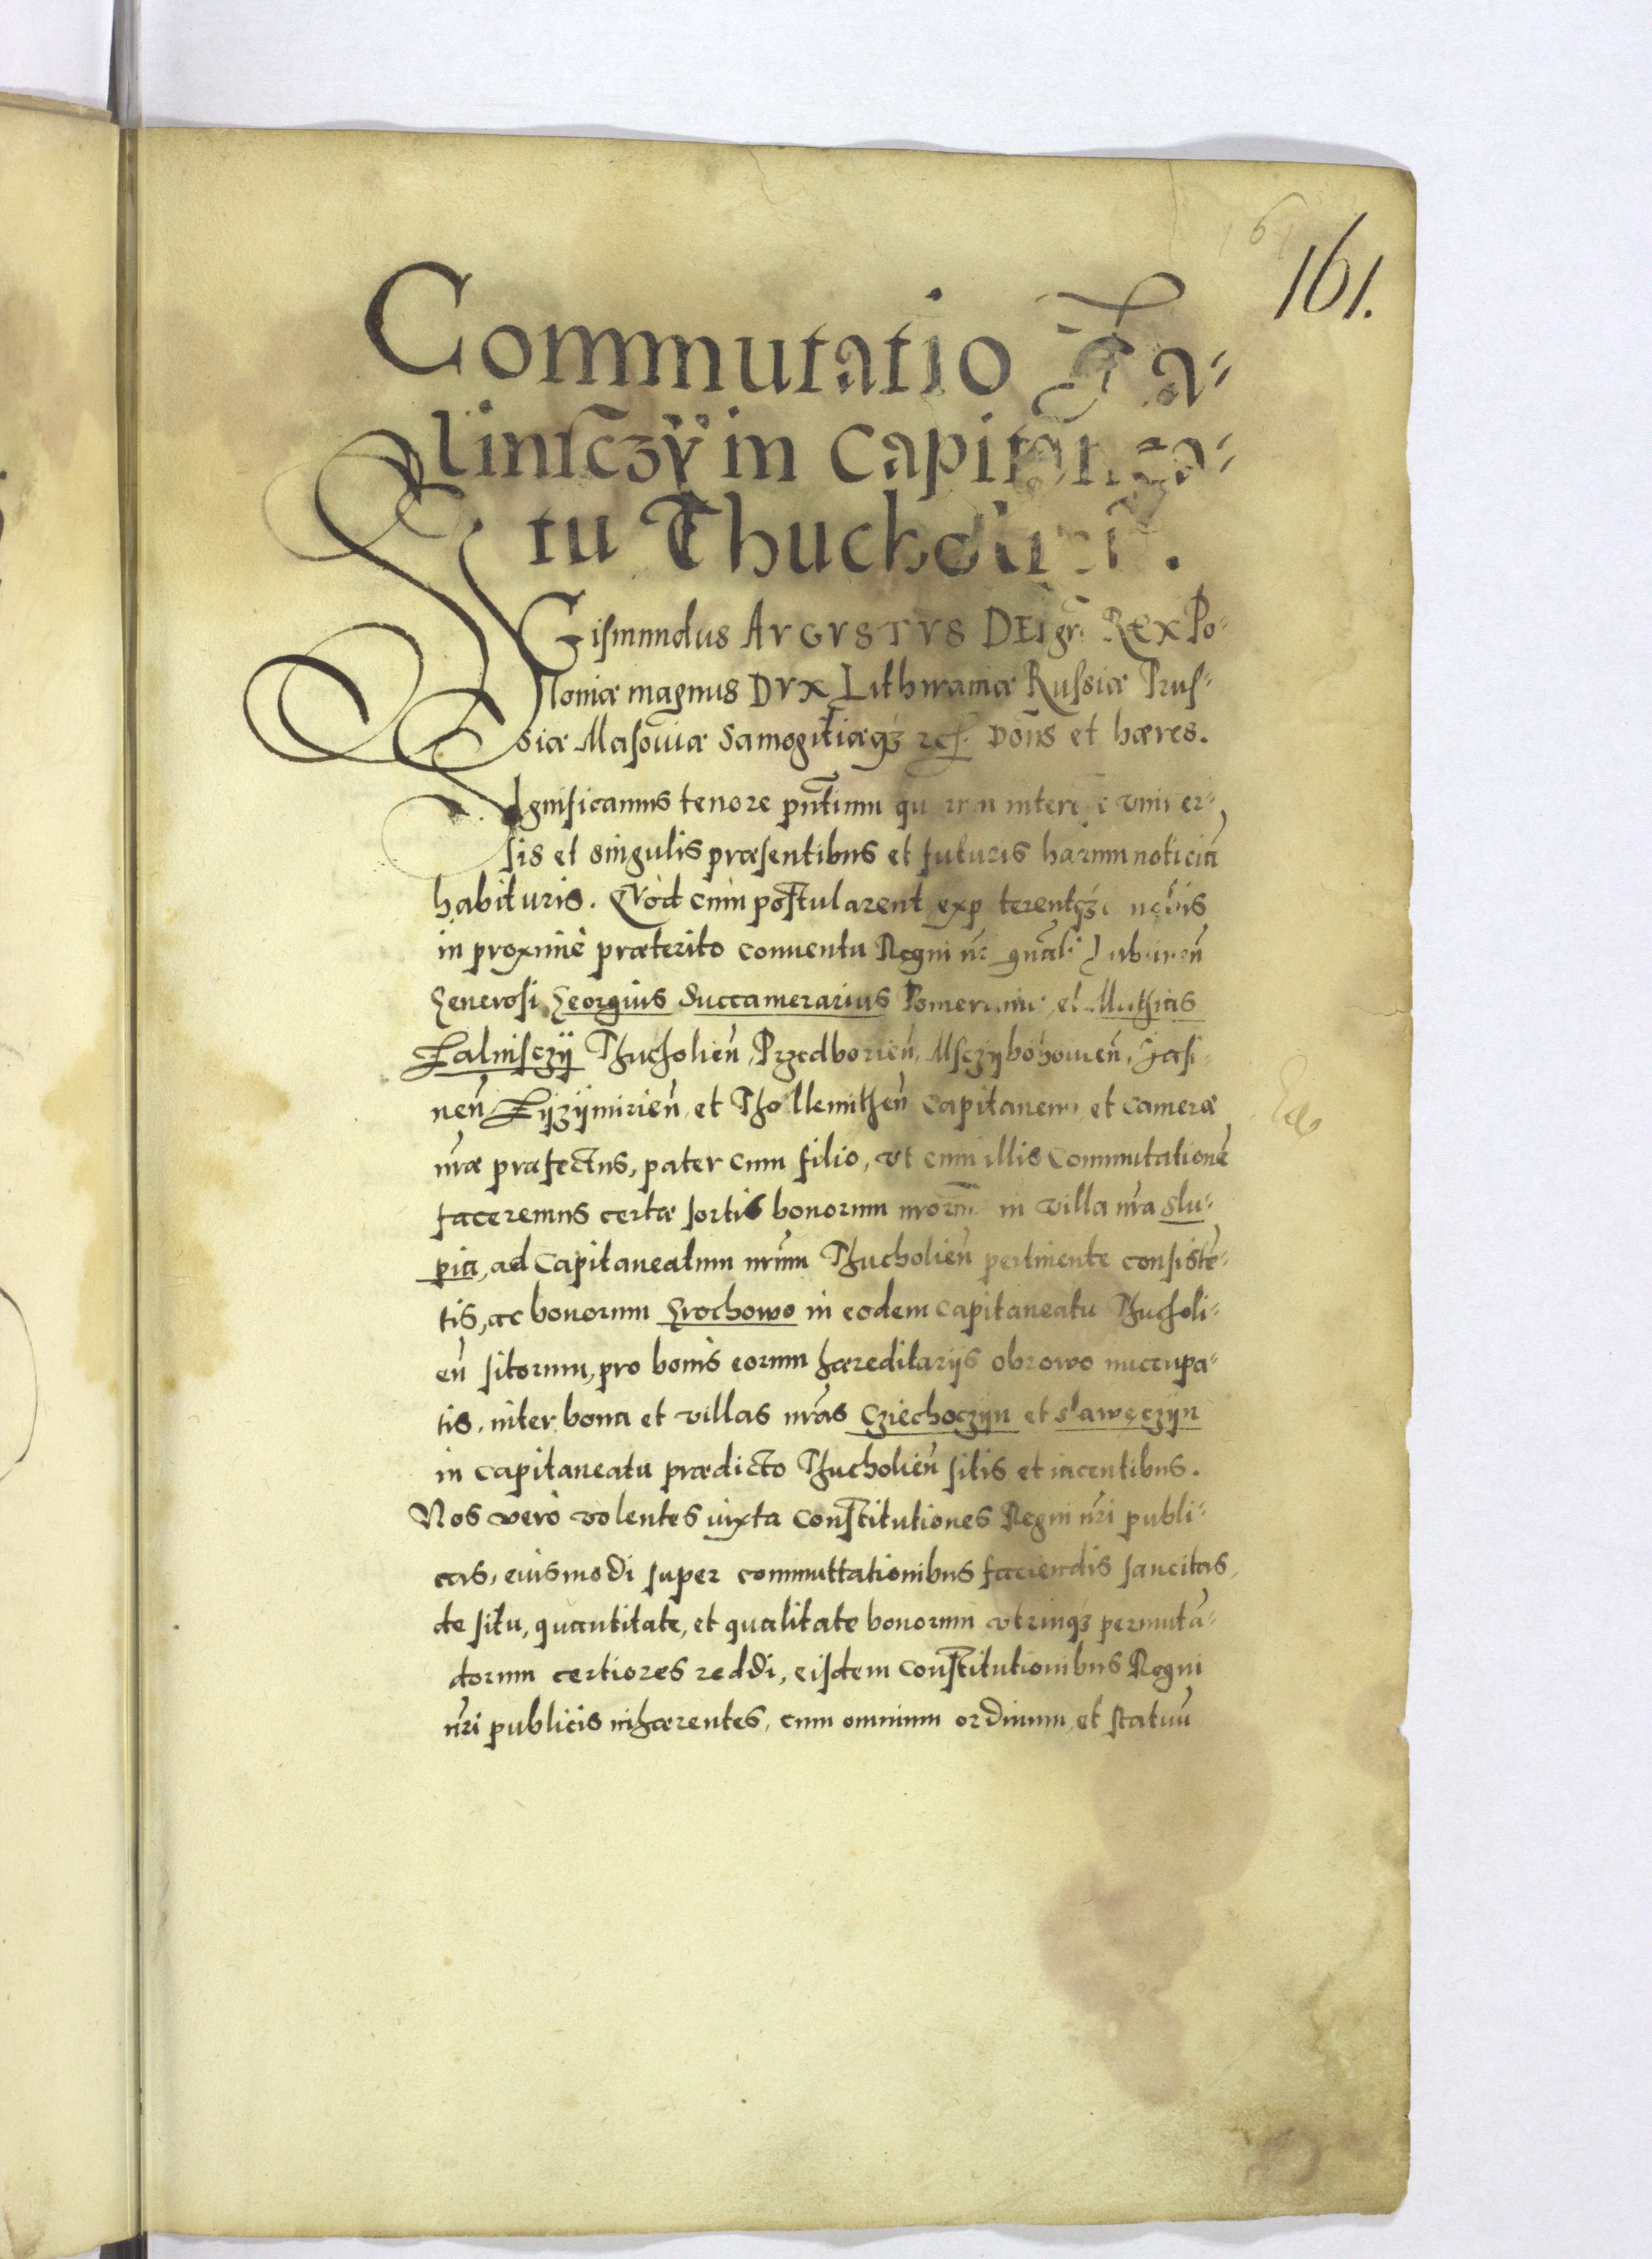 161.
Commutatio Za-
linsczÿ in Capitanea-
tu Thucholien̄.
SIGismundus AVGVSTVS DEI gr̄: REX Po-
loniæ magnus DVX Lithvaniæ Russiæ Prus-
siæ Masoviæ Samogitiæqꝫ zc. Dōns et hæres.
Significamus tenore pn̄tium quorum interest vniver-
sis et singulis præsentibus et futuris harum noticiā
habituris. Qvod cum postularent expeterentqꝫ a nobis
in proximè præterito conuentu Regni nr̄i gn̄ali Lublinen̄
Generosi Georgius Succamerarius Pomeraniæ, et Mathias
Zalinsczÿ Thucholien̄, Przedborien̄, Msczÿbohowien̄, Jasi-
nen̄, Zÿzÿmirien̄, et Thollemithen̄ Capitaneus, et Cameræ
nr̄æ præfectus, pater cum filio, vt cum illis Commutationē
faceremus certæ sortis bonorum nr̄orum in villa nr̄a Slu-
pia, ad Capitaneatum nr̄um Thucholien̄ pertinente consistē-
tis, ac bonorum Grochowo in eodem Capitaneatu Thucholi-
en̄ sitorum, pro bonis eorum hæreditarijs obrowo nuccupa-
tis, inter bona et villas nr̄as Cziechoczÿn et slawęczÿn
in Capitaneatu prædicto Thucholien̄ sitis et iacentibus.
Nos verò volentes iuxta Constitutiones Regni nr̄i publi-
cas, eiusmodi super commuttationibus faciendis sancitas,
de situ, quantitate, et qualitate bonorum vtrinqꝫ permutā-
dorum certiores reddi, eisdem Constitutionibus Regni
nr̄i publicis inhærentes, cum omnium ordinum, et statuū